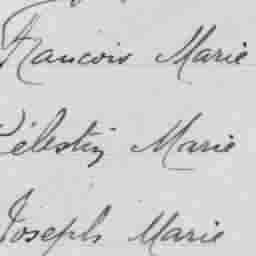 Francois Marie
Célestin Marie
Joseph Marie